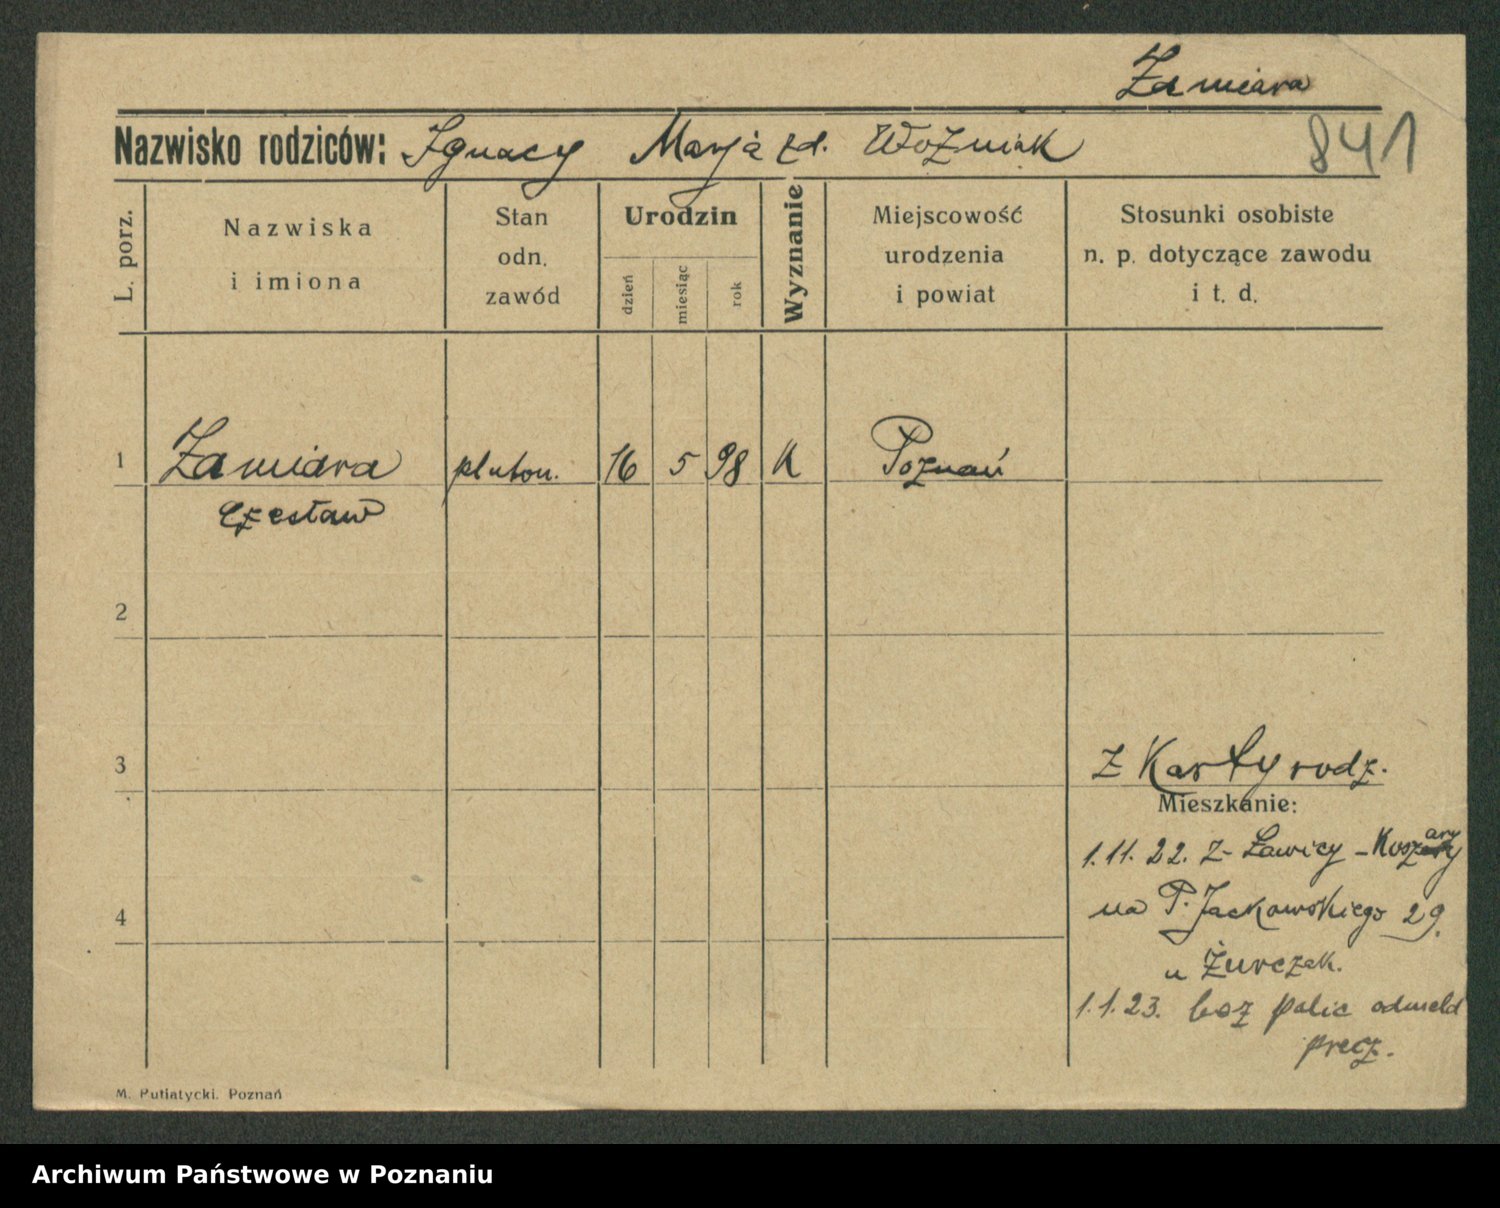 Zamiara
Nazwisko rodziców: Ignacy Marja zd. Woźniak
841
L. porz.
Nazwiska
i imiona
Stan
odn.
zawód
Urodzin
dzień
miesiąc
rok
Wyznanie
Miejscowość
urodzenia
i powiat
Stosunki osobiste
n. p. dotyczące zawodu
i t. d.
1 Zamiara pluton. 16 5 98 K Poznań
Czesław
2
3
z Karty rodz.
Mieszkanie:
1.11.22. z Ławicy - Koszary
4
na P. Jackowskiego 29.
u Żurczak.
1.1.23. bez polic odmeld
precz.
M. Putiatycki. Poznań
Archiwum Państwowe w Poznaniu